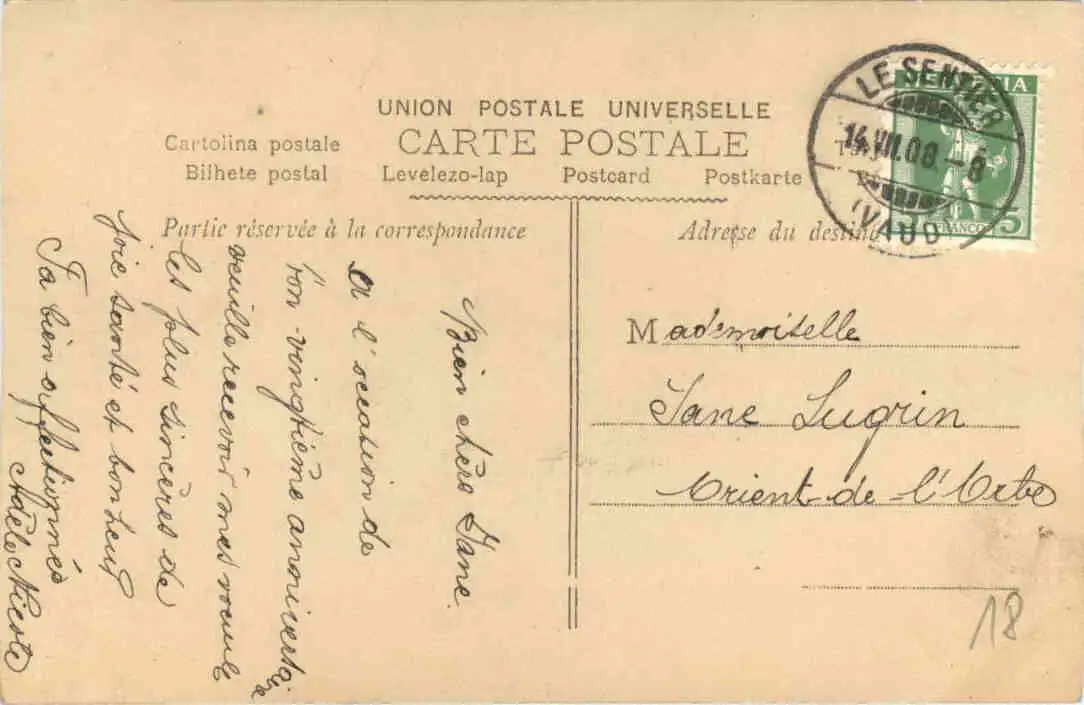 UNION POSTALE UNIVERSELLE
CARTE POSTALE
Cartolina postale
Bilhete postal Levelezo-lap Postcard Postkarte
Partie réservée à la correspondance
Adresse du destina
LE SENTIER
14.VII.08.-6
(VAUD)
HELVETIA
FRANCO 5
Bien chère Jane
A l'occasion de
ton vingtième anniversaire
veuille recevoir mes voeux
les plus sincères de
joie santé et bonheur
Ta bien affectionnée
Adèle Nicole
Mademoiselle
Jane Lugrin
Orient-de-l'Orbe
18